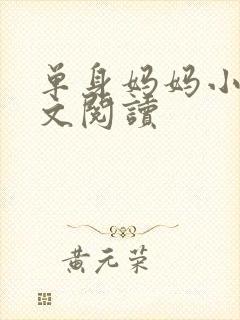 单身妈妈小
文閱讀
黄元荣